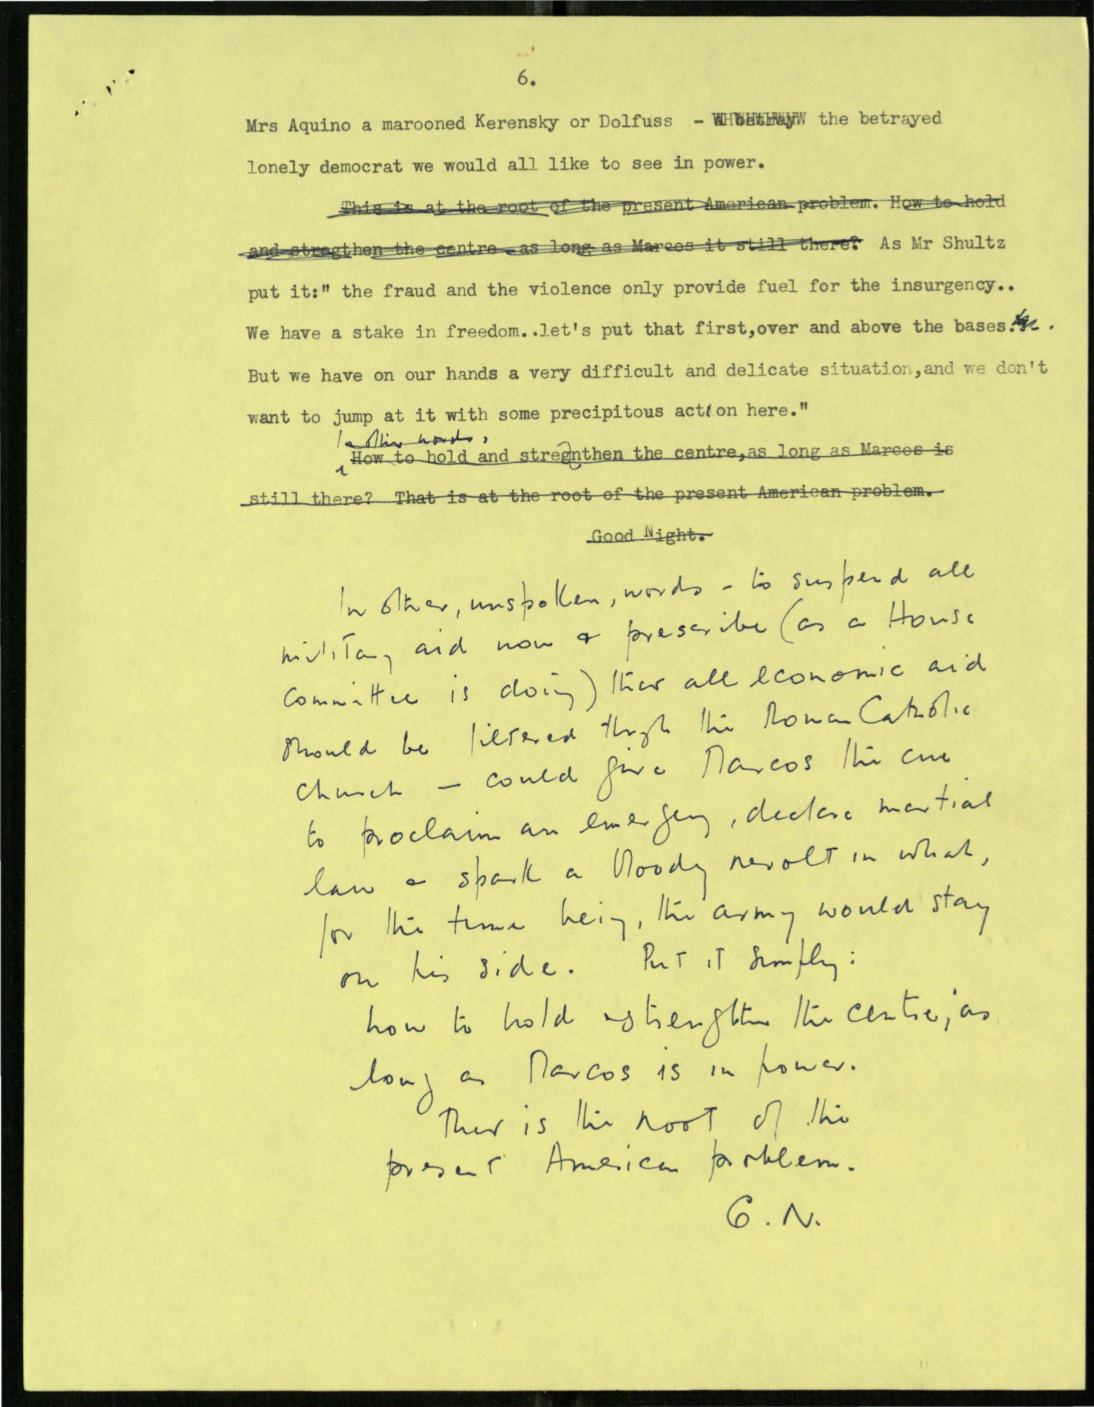 6.
Mrs Aquino a marooned Kerensky or Dolfuss - the betrayed
lonely democrat we would all like to see in power.
This is at the root of the present American problem. How to hold
and stregthen the centre - as long as Marcos it still there? As Mr Shultz
put it:" the fraud and the violence only provide fuel for the insurgency..
We have a stake in freedom..let's put that first,over and above the bases.
But we have on our hands a very difficult and delicate situation,and we don't
want to jump at it with some precipitous action here."
In other words,
How to hold and stregnthen the centre,as long as Marcos is
still there? That is at the root of the present American problem.
Good Night.
In other, unspoken, words - to suspend all
military aid now & prescribe (as a House
Committee is doing) that all economic aid
should be filtered thrgh the Roman Catholic
church - could give Marcos the cue
to proclaim an emergency, declare martial
law & spark a bloody revolt in which,
for the time being, the army would stay
on his side. Put it simply:
how to hold & strengthen the centre, as
long as Marcos is in power.
That is the root of the
present American problem.
G.N.